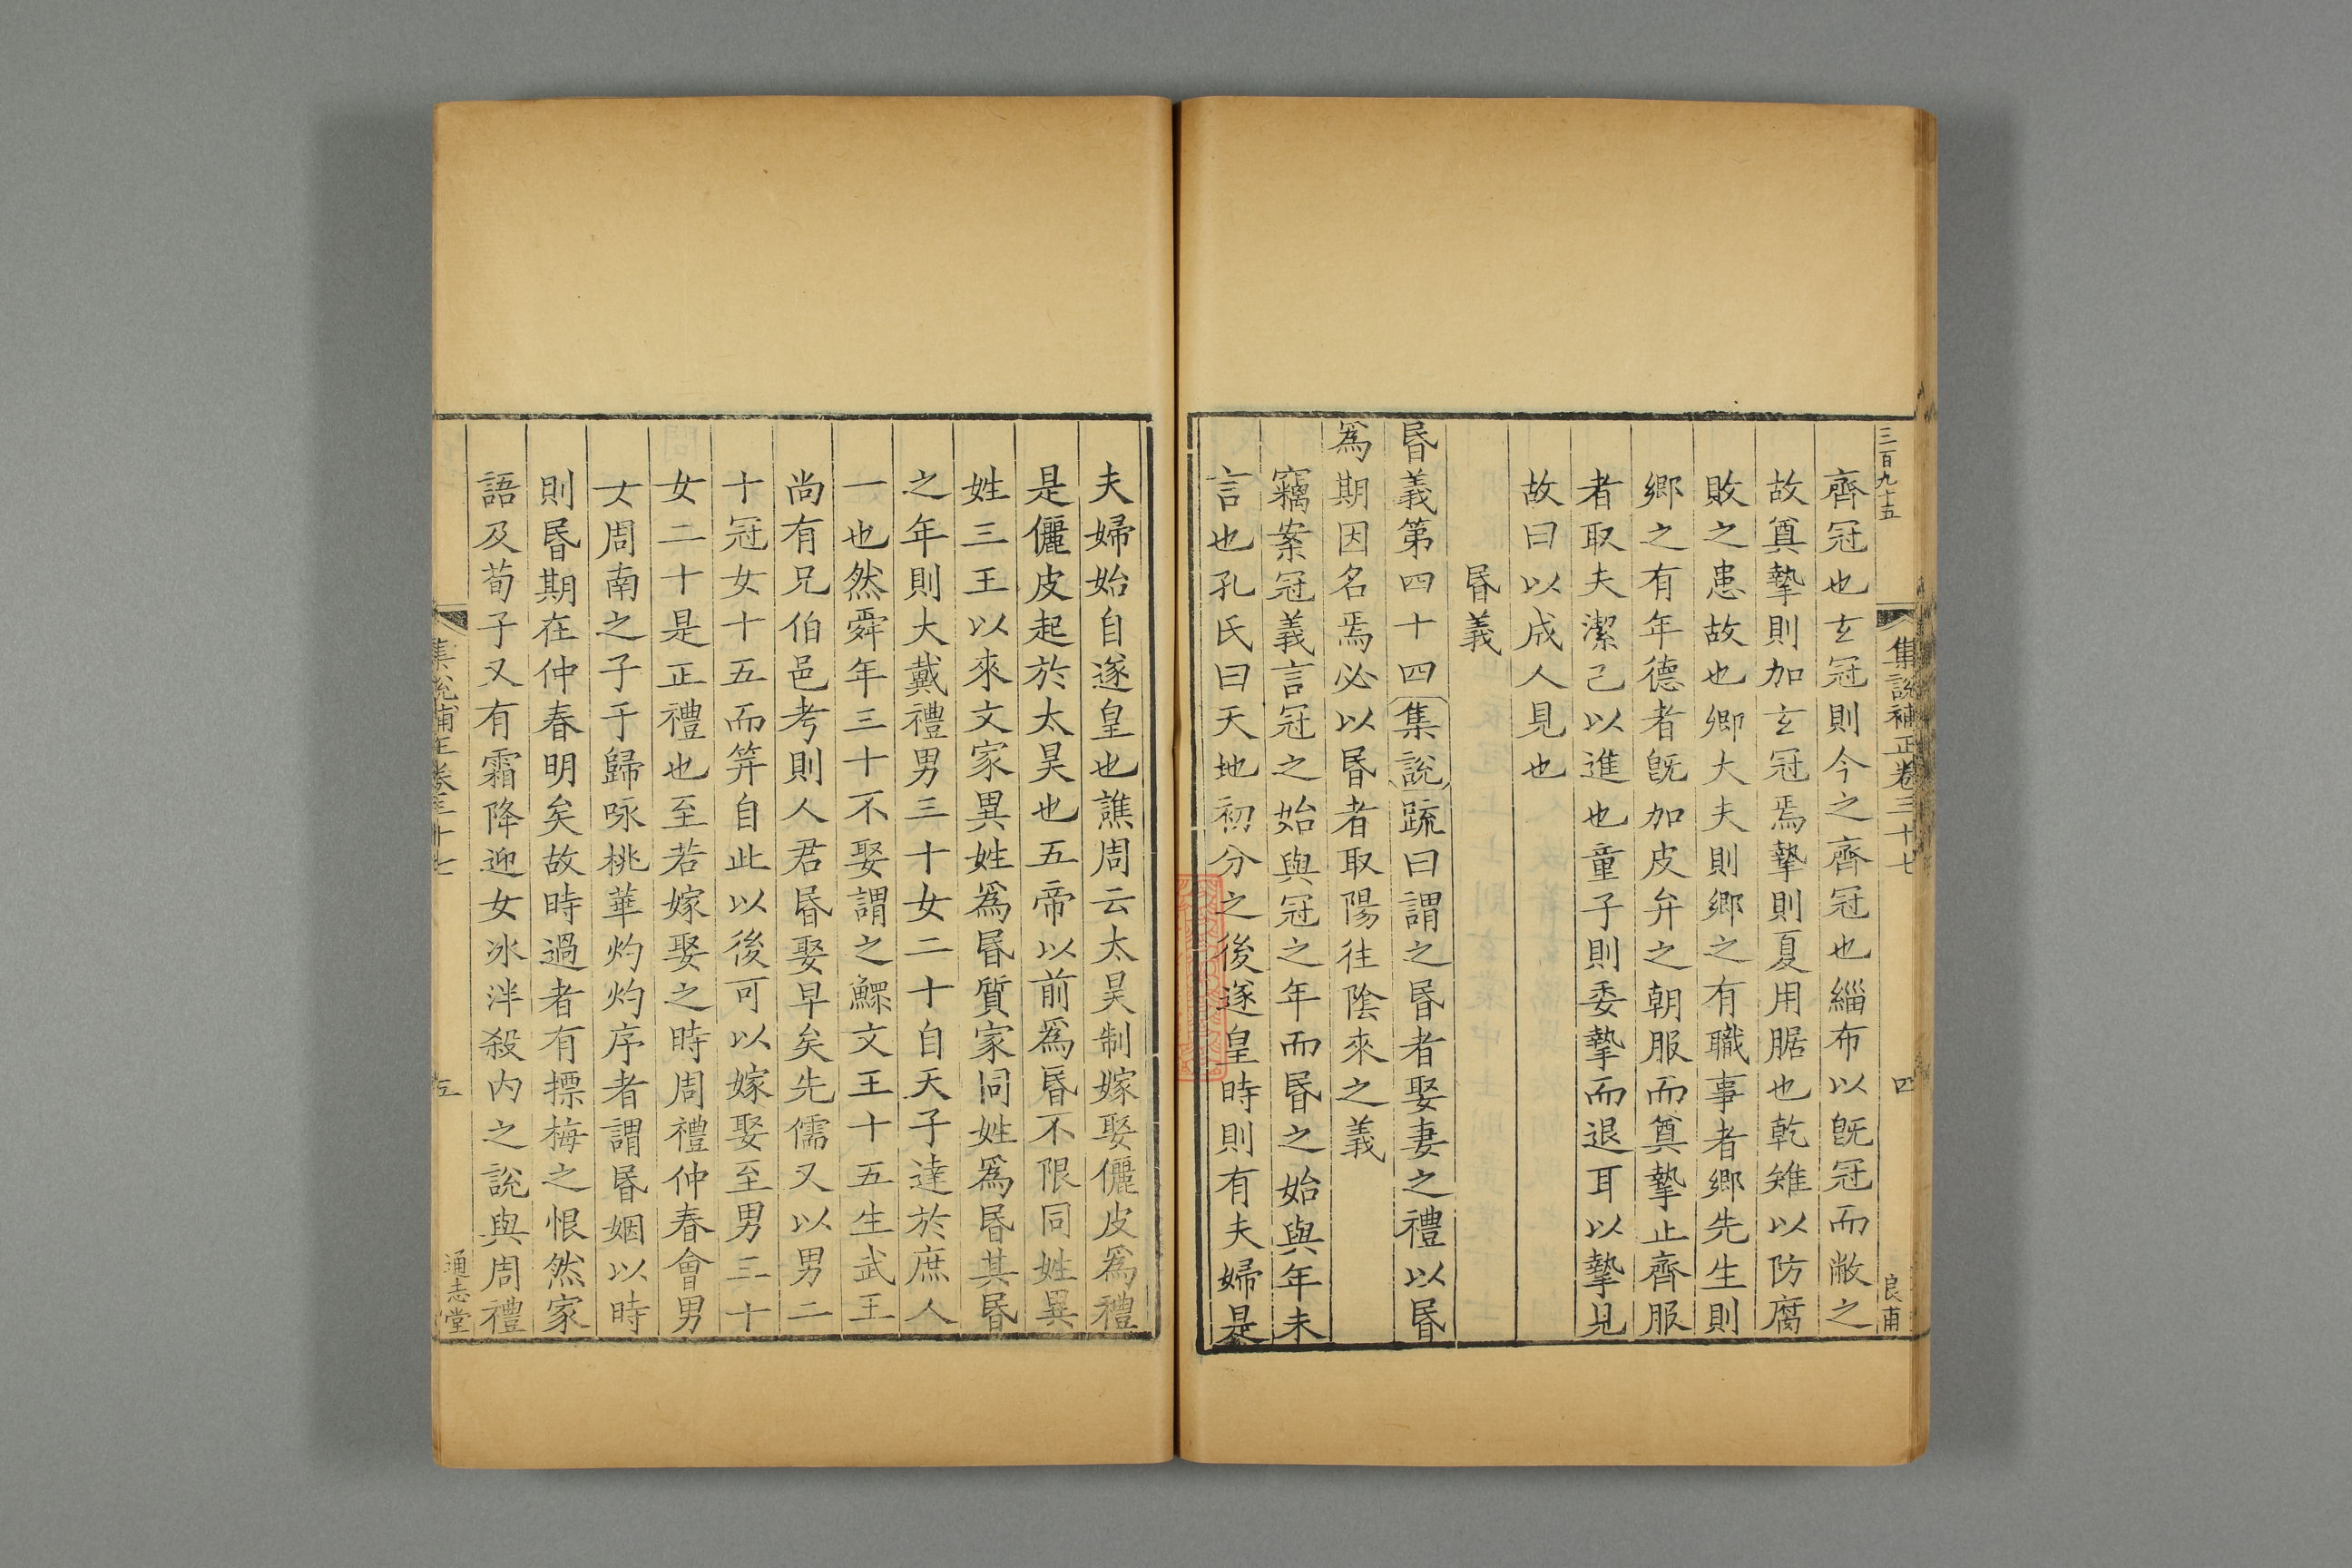 三百九十五
集說補正卷三十七
四
良甫
齊冠也玄冠則今之齊冠也緇布以旣冠而敝之
故奠摯則加玄冠焉摯則夏用腒也乾雉以防腐
敗之患故也鄉大夫則鄉之有職事者鄉先生則
鄉之有年德者旣加皮弁之朝服而奠摯止齊服
者取夫潔己以進也童子則委摯而退耳以摯見
故曰以成人見也
昬義
昬義第四十四集說疏曰謂之昬者娶妻之禮以昬
爲期因名焉必以昬者取陽往陰來之義
竊案冠義言冠之始與冠之年而昬之始與年未
言也孔氏曰天地初分之後遂皇時則有夫婦是
夫婦始自遂皇也譙周云太昊制嫁娶儷皮爲禮
是儷皮起於太昊也五帝以前爲昬不限同姓異
姓三王以來文家異姓爲昬質家同姓爲昬其昬
之年則大戴禮男三十女二十自天子達於庶人
一也然舜年三十不娶謂之鰥文王十五生武王
尚有兄伯邑考則人君昬娶早矣先儒又以男二
十冠女十五而筓自此以後可以嫁娶至男三十
女二十是正禮也至若嫁娶之時周禮仲春會男
女周南之子于歸咏桃華灼灼序者謂昬姻以時
則昬期在仲春明矣故時過者有摽梅之恨然家
語及荀子又有霜降迎女冰泮殺內之說與周禮
集說補正卷三十七
五
通志堂